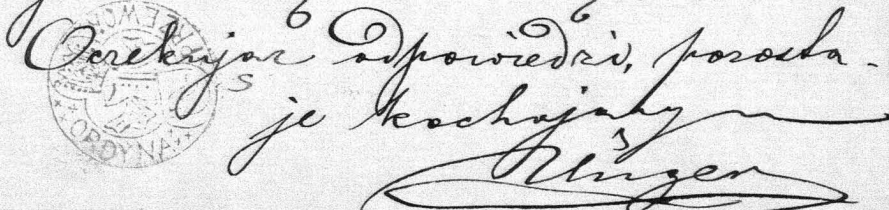 Oczekując odpowiedzi, pozosta-
je kochający
Unger
ORDYNA